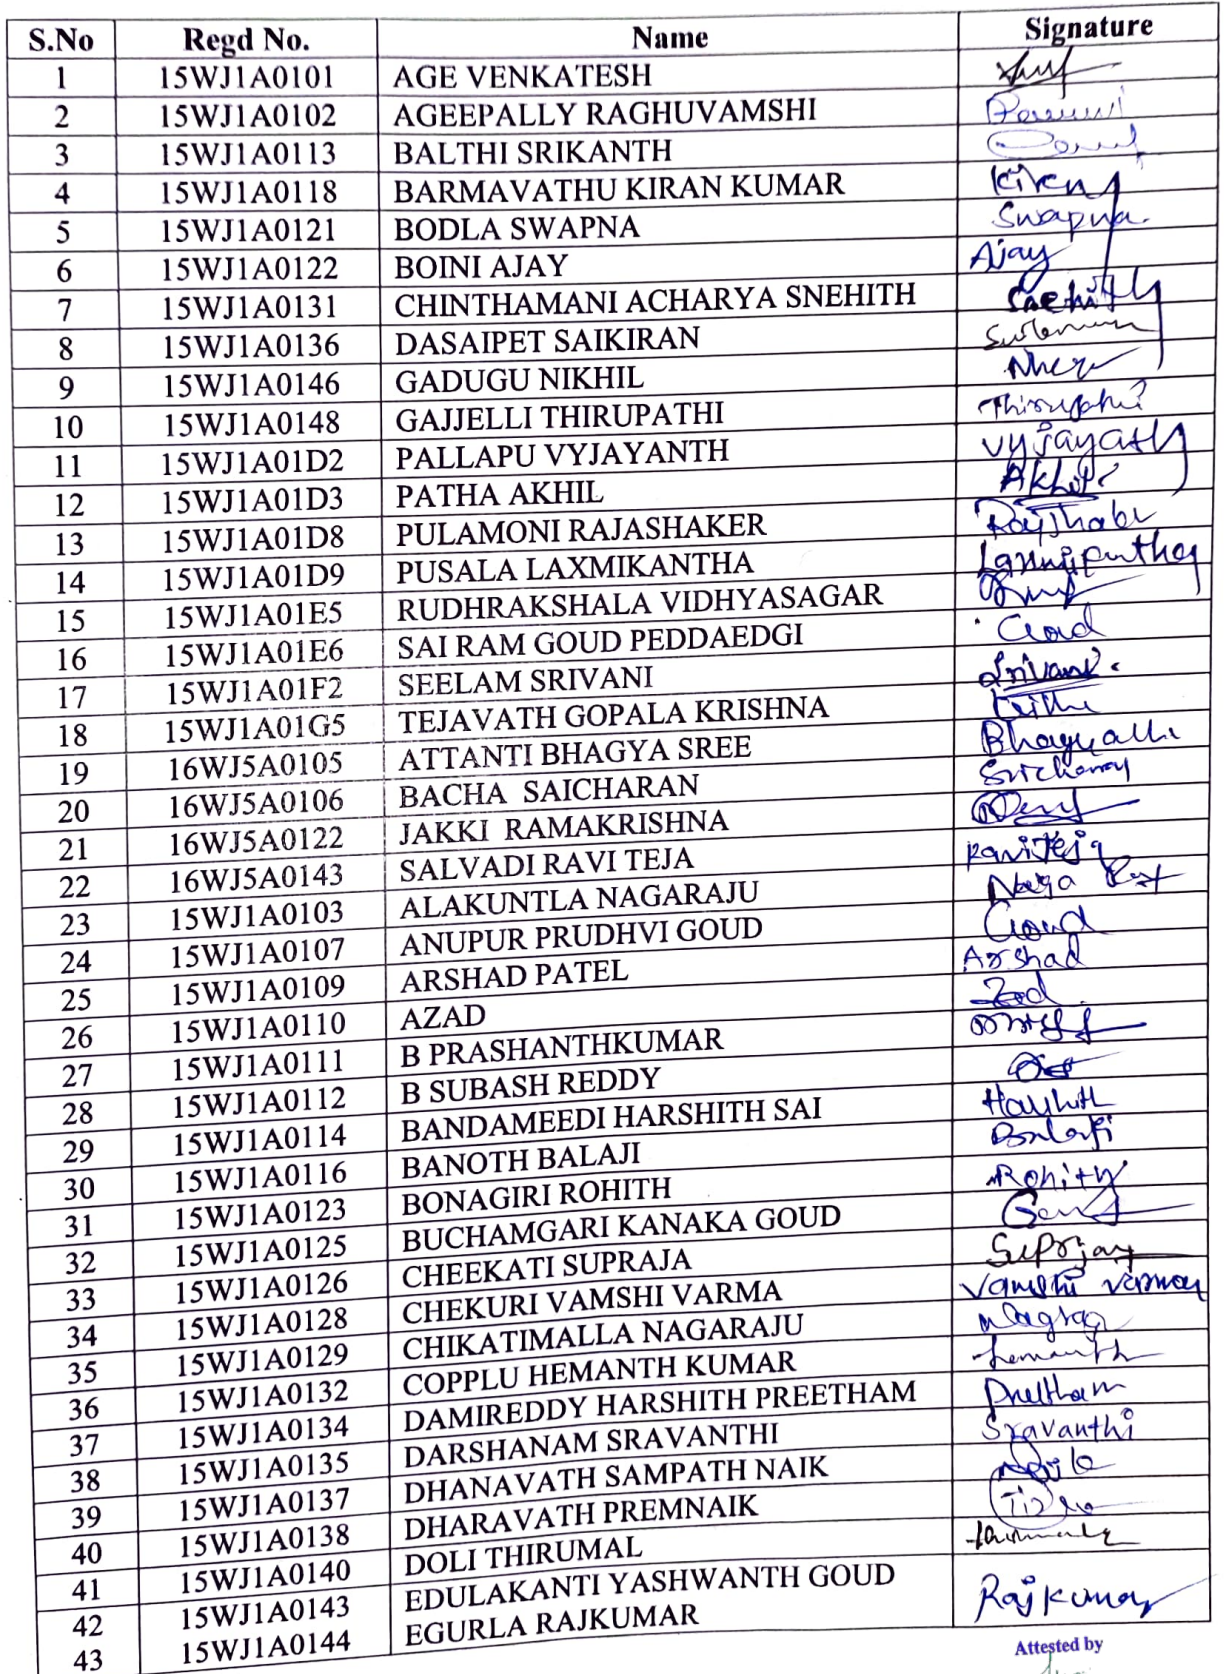 S.No Regd No. Name Signature
1 15WJ1A0101 AGE VENKATESH
2 15WJ1A0102 AGEEPALLY RAGHUVAMSHI
3 15WJ1A0113 BALTHI SRIKANTH
4 15WJ1A0118 BARMAVATHU KIRAN KUMAR Kiran
5 15WJ1A0121 BODLA SWAPNA Swapna.
6 15WJ1A0122 BOINI AJAY Ajay
7 15WJ1A0131 CHINTHAMANI ACHARYA SNEHITH Snehith
8 15WJ1A0136 DASAIPET SAIKIRAN
9 15WJ1A0146 GADUGU NIKHIL
10 15WJ1A0148 GAJJELLI THIRUPATHI
11 15WJ1A01D2 PALLAPU VYJAYANTH
12 15WJ1A01D3 PATHA AKHIL Akhil
13 15WJ1A01D8 PULAMONI RAJASHAKER
14 15WJ1A01D9 PUSALA LAXMIKANTHA
15 15WJ1A01E5 RUDHRAKSHALA VIDHYASAGAR
16 15WJ1A01E6 SAI RAM GOUD PEDDAEDGI Goud
17 15WJ1A01F2 SEELAM SRIVANI Srivani
18 15WJ1A01G5 TEJAVATH GOPALA KRISHNA
19 16WJ5A0105 ATTANTI BHAGYA SREE
20 16WJ5A0106 BACHA SAICHARAN
21 16WJ5A0122 JAKKI RAMAKRISHNA
22 16WJ5A0143 SALVADI RAVI TEJA RaviTeja
23 15WJ1A0103 ALAKUNTLA NAGARAJU Naga
24 15WJ1A0107 ANUPUR PRUDHVI GOUD Goud
25 15WJ1A0109 ARSHAD PATEL Arshad
26 15WJ1A0110 AZAD
27 15WJ1A0111 B PRASHANTHKUMAR
28 15WJ1A0112 B SUBASH REDDY
29 15WJ1A0114 BANDAMEEDI HARSHITH SAI
30 15WJ1A0116 BANOTH BALAJI Balaji
31 15WJ1A0123 BONAGIRI ROHITH Rohith
32 15WJ1A0125 BUCHAMGARI KANAKA GOUD
33 15WJ1A0126 CHEEKATI SUPRAJA
34 15WJ1A0128 CHEKURI VAMSHI VARMA Vamshi Varma
35 15WJ1A0129 CHIKATIMALLA NAGARAJU
36 15WJ1A0132 COPPLU HEMANTH KUMAR Hemanth
37 15WJ1A0134 DAMIREDDY HARSHITH PREETHAM Preetham
38 15WJ1A0135 DARSHANAM SRAVANTHI Sravanthi
39 15WJ1A0137 DHANAVATH SAMPATH NAIK
40 15WJ1A0138 DHARAVATH PREMNAIK
41 15WJ1A0140 DOLI THIRUMAL
42 15WJ1A0143 EDULAKANTI YASHWANTH GOUD
43 15WJ1A0144 EGURLA RAJKUMAR Rajkumar
Attested by